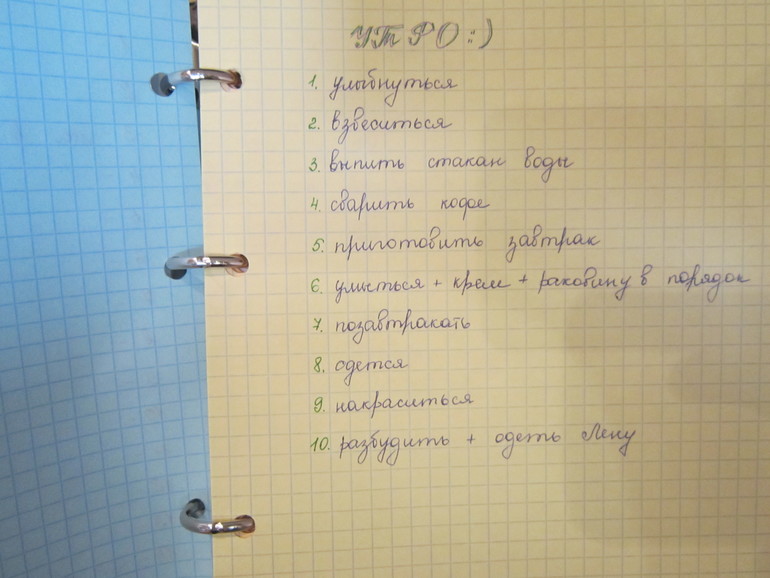 УТРО :)
1. улыбнуться
2. взвеситься
3. выпить стакан воды
4. сварить кофе
5. приготовить завтрак
6. умыться + крем + раковину в порядок
7. позавтракать
8. одется
9. накраситься
10. разбудить + одеть Лену